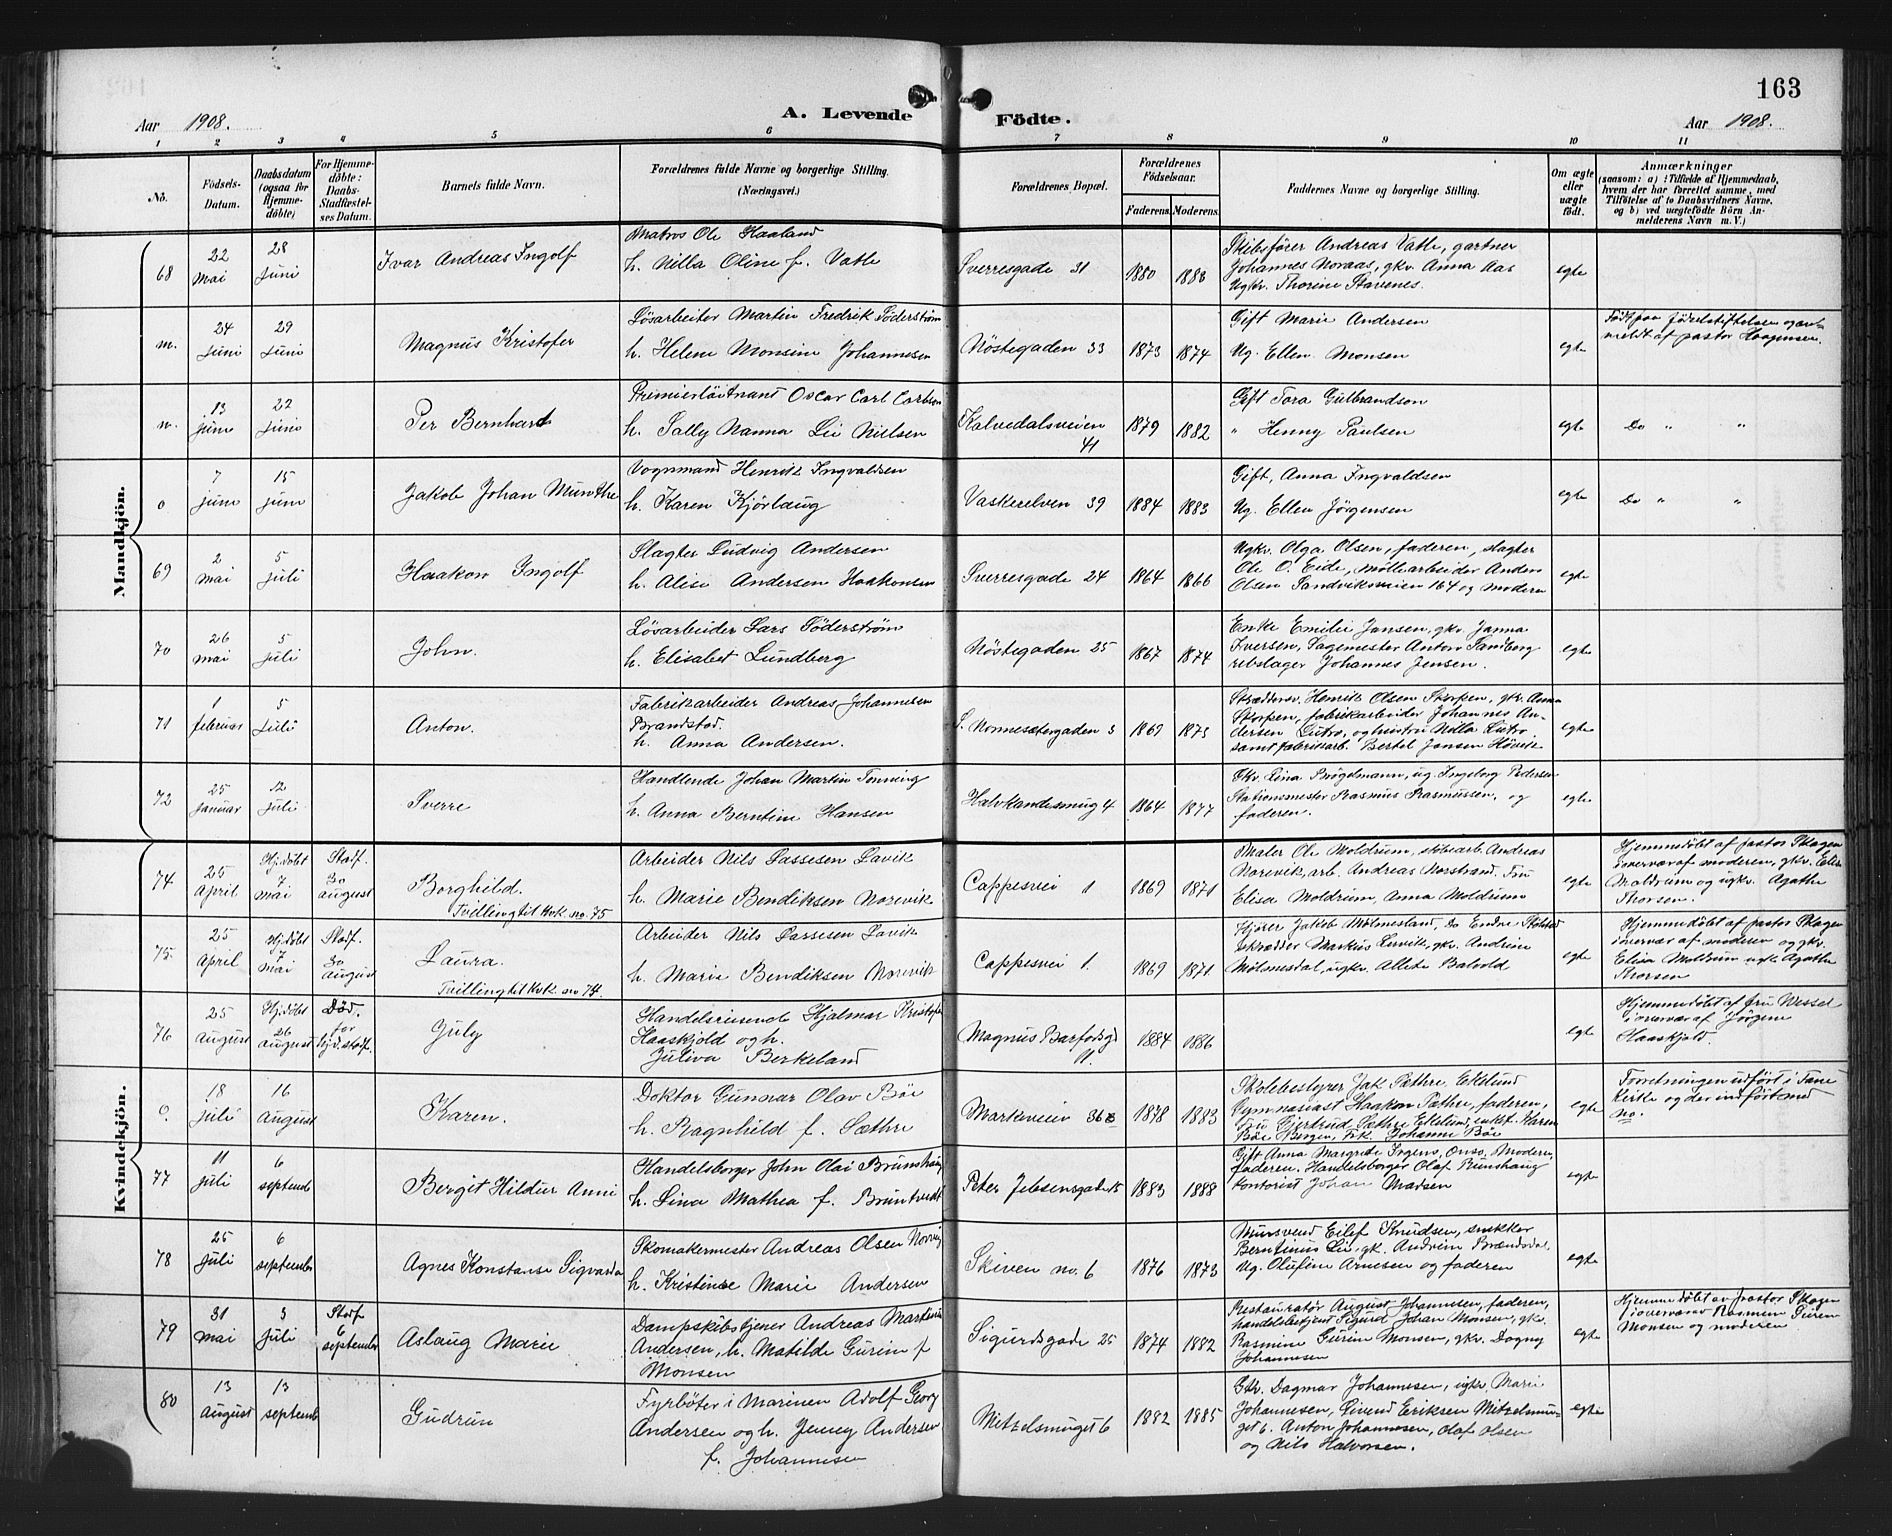 163
Aar 1908.
A. Levende Födte.
Aar 1908.
1 2 3 4 5 6 7 8 9 10 11
No.
Födsels-Datum.
Daabsdatum (ogsaa for Hjemme-döbte)
For Hjemme-döbte: Daabs-Stadfæstel-ses Datum.
Barnets fulde Navn.
Forældrenes fulde Navne og borgerlige Stilling.
(Næringsvei.)
Forældrenes Bopæl.
Forældrenes Födselsaar.
Faderens. Moderens.
Faddernes Navne og borgerlige Stilling.
Om ægte eller uægte födt.
Anmærkninger
(saasom: a) i Tilfælde af Hjemmedaab, hvem der har forrettet samme, med Tilföielse af to Daabsvidners Navne, og b) ved uægtefödte Börn An-melderens Navn m. V.)
Mandkjön.
68 22 Mai 28 Juni Ivar Andreas Ingolf
Matros Ole Haaland
h. Nilla Oline f. Vatle
Sverresgade 31 1880 1888
Skibsfører Andreas Vatle, gartner
Johannes Noraas, gkv. Anna Aas
Ugkv. Thorine Stavenes.
egte
m. 24 Juni 29 Juni Magnus Kristofer
Løsarbeider Martin Fredrik Söderstrøm
h. Helene Monsine Johannesen
Nöstegaden 33 1873 1874
Gift Marie Andersen
Ug. Ellen Monsen
egte
Født paa Födselstiftelsen og anmeldt af pastor Haagensen.
n. 13 Juni 22 Juni Per Bernhard
Premierløitnant Oscar Carl Carlson
h. Sally Nanna Lie Nielsen
Kalvedalsveien 41 1879 1882
Gift Tora Gulbrandson
" Henny Paulsen
egte
Do " "
o 7 Juni 15 Juni Jakob Johan Munthe
Vognmand Henrik Ingvaldsen
h. Karen Kjørlaug
Vaskerelven 39 1884 1883
Gift, Anna Ingvaldsen
Ug. Ellen Jörgensen
egte
Do " "
69 2 Mai 5 Juli Haakon Ingolf
Slagter Ludvig Andersen
h. Alise Andersen Haakonsen
Sverresgade 24 1864 1866
Ugkv. Olga Olsen, faderen, slagter
Ole O. Eide, møllearbeider Anders
Olsen Sandviksveien 164 og moderen
egte
70 26 Mai 5 Juli John.
Løsarbeider Lars Söderstrøm
h. Elisabet Lundberg
Nöstegaden 25 1867 1874
Enke Emilie Jansen, gkv. Janna
Iversen, Sagemester Anton Sandberg
rebslager Johannes Jensen.
egte
71 1 Februar 5 Juli Anton.
Fabrikarbeider Andreas Johannesen
Brandstad.
h. Anna Andersen.
S. Nonnesætergaden 3 1869 1873
Skræddersv. Henrik Olsen Skorpen, gkv. Anna
Skorpen, fabrikarbeider Johannes An-
dersen Lutro, og hustru Nilla Lutro
samt fabrikarb. Bertel Jansen Hövik
egte
72 25 Januar 12 Juli Sverre
Handlende Johan Martin Tonning
h. Anna Berntine Hansen
Halvkandesmug 4 1864 1877
Gkv. Lina Brögelmann, ug. Ingeborg Pedersen
Stationsmester Rasmus Rasmussen. og
faderen.
egte
Kvindekjön.
74 25 April Hj.döbt 7 Mai Stadf. 30 August Borghild.
Tvilling til kvk. no. 75
Arbeider Nils Lassesen Lavik
h. Marie Bendiksen Norevik
Cappesvei 1 1869 1871
Maler Ole Moldrum, skibsarb. Andreas
Norevik, arb. Andreas Norstrand, Fru
Elisa Moldrum, Anna Moldrum
egte
Hjemmedöbt af pastor Skagen
i overvær af moderen, gkv. Elisa
Moldrum og ugkv. Agathe
Thorsen.
75 25 April Hj.döbt 7 Mai Stadf. 30 August Laura.
Tvilling til kvk no 74.
Arbeider Nils Lassesen Lavik
h. Marie Bendiksen Norevik
Cappesvei 1. 1869 1871
Hjører Jakob Mölmesland, Do Endre
skrædder Markus Lervik, gkv. Andrine
Mölmesdal, ugkv. Allete Balvold
egte
Hjemmedöbt af pastor Skagen
i overvær af moderen og gkv.
Elisa Moldrum ugk. Agathe
Thorsen
76 25 August Hj.döbt 26 August Död. før hjd. stadf. July
Handelsreisende Hjalmar Kristofer
Haaskjold og h.
Juliva Berkeland
Magnus Barfodsgd 11. 1884 1886
egte
Hjemmedöbt af fru Wessel
i overvær af Jørgine
Haaskjold.
o 18 Juli 16 August Karen.
Doktor Gunnar Olav Böe
h. Ragnhild f. Sæthre
Markeveien 36 1878 1883
Skolebestyrer Jak. Sæthre, Ekelund
Gymnasiast Haakon Sæthre, faderen,
Fru Gjertrud Sæthre Ekelund, enkef. Karen
Böe Bergen, Frk. Johanne Böe
egte
Forretningen udført i Fane
Kirke og der indført med
no.
77 11 Juli 6 septemb Bergit Hildur Anni
Handelsborger John Olai Brunshaug
h. Lina Mathea f. Bruntveidt
Peter Jebsensgade 15 1883 1888
Gift Anna Margrete Irgens, Onso, Moderen,
faderen. Handelsborger Olaf Runshaug
kontorist Johan Madsen
egte
78 25 Juli 6 september Agnes Konstanse Sigvarda
Skomakermester Andreas Olsen Norvig
h. Kristine Marie Andersen
Skiven no. 6 1876 1873
Mursvend Eilef Knudsen, snekker
Berntinus Lie, gk. Andrine Brændsdal,
Ug. Olufine Arnesen og faderen
egte
79 31 Mai 5 Juli Stadf 6 september Aslaug Marie
Dampskibstjener Andreas Martinus
Andersen, h. Matilde Gurine f
Monsen
Sigurdsgade 25 1874 1882
Restauratør August Johannesen, faderen,
handelsbetjent Sigurd Johan Monsen, gkv.
Rasmine Gurine Monsen, gkv. Dagny
Johannesen
egte
Hjemmedöbt av pastor Skagen
i overvær av Rasmine Gurine
Monsen og moderen
80 13 August 13 septemb Gudrun
Fyrböter i Marinen Adolf Georg
Andersen og h. Jenny Andersen
f. Johannesen
Mitzelsmuget 6 1882 1885
Gkv. Dagmar Johannesen, ugkv. Marie
Johannesen, Sivend Eriksen Mitzelsmu-
get 6. Anton Johannesen, Olaf Olsen
og Nils Halvorsen.
egte